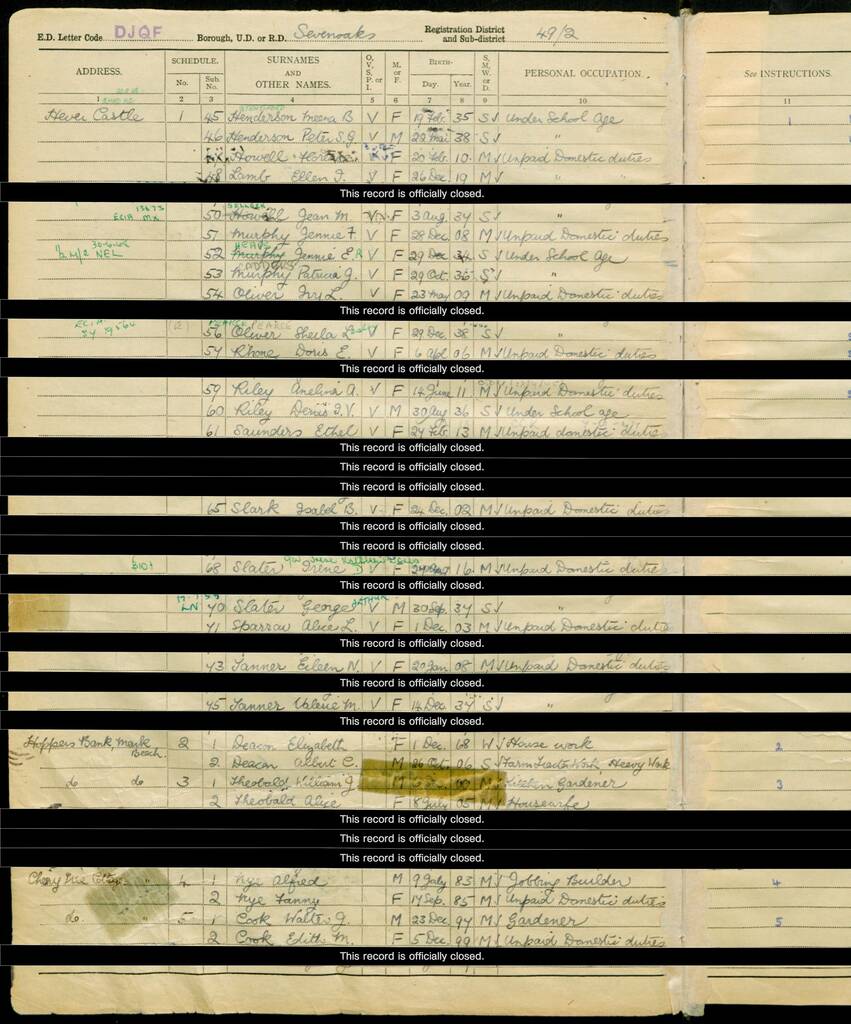 E.D. Letter Code DJQF Borough, U.D. or R.D. Sevenoaks Registration District and Sub-district 49/2
ADDRESS. SCHEDULE. No. Sub. No. SURNAMES AND OTHER NAMES. O, V, S, P, or I. M. or F. BIRTH— Day. Year. S, M, W, or D. PERSONAL OCCUPATION. See INSTRUCTIONS.
1 2 3 4 5 6 7 8 9 10 11
Hever Castle 1 45 Henderson Meena B V F 19 Feb. 35 S Under School Age 1
46 Henderson Peter S.G V M 38 S "
Howell F 20 Feb. 10 M Unpaid Domestic duties
48 Lamb Ellen V F 26 Dec 19 M " "
This record is officially closed.
50 Howell Jean M. F 3 Aug. 34 S "
51 Murphy Jennie F. V F 28 Dec 08 M Unpaid Domestic duties
30-6-
NEL 52 Murphy Jennie E. V F 29 Dec 34 S Under School Age
53 Murphy Patricia J. V F 29 Oct. 36 S "
54 Oliver Ivy L. V F 23 May 09 M Unpaid Domestic duties
This record is officially closed.
PEARCE
56 Oliver Sheila V F 29 Dec. 38 S "
57 Rhone Doris E. V F 6 Apl 06 M Unpaid Domestic duties
This record is officially closed.
59 Riley Amelina A. V F 14 June 11 M Unpaid Domestic duties
60 Riley Denis V. V M 30 Aug 36 S Under School age
61 Saunders Ethel V F 24 Feb. 13 M Unpaid domestic duties
This record is officially closed.
This record is officially closed.
This record is officially closed.
65 Slark Isabel B. V F 24 Dec. 02 M Unpaid Domestic duties
This record is officially closed.
This record is officially closed.
68 Slater Irene V F 16 M Unpaid Domestic duties
This record is officially closed.
LN 70 Slater George ARTHUR V M 30 Sep. 34 S "
71 Sparrow Alice L. V F 1 Dec. 03 M Unpaid Domestic duties
This record is officially closed.
73 Tanner Eileen N. V F 20 Jan. 08 M Unpaid Domestic duties
This record is officially closed.
75 Tanner Valerie M. V F 14 Dec. 34 S "
This record is officially closed.
Hoppers Bank, Mark Beech. 2 1 Deacon Elizabeth F 1 Dec. 68 W House work 2
2 Deacon Albert C. M 26 Oct. 06 S Farm Heavy Work
do do 3 1 Theobald William J. M M Kitchen Gardener 3
2 Theobald Alice F 8 July 05 M Housewife
This record is officially closed.
This record is officially closed.
This record is officially closed.
Cherry Tree Cottages " 4 1 Nye Alfred M 9 July 83 M Jobbing Builder 4
2 Nye Fanny F 17 Sep. 85 M Unpaid Domestic duties
do. 5 1 Cook Walter J. M 23 Dec 94 M Gardener 5
2 Cook Edith M. F 5 Dec. 99 M Unpaid Domestic duties
This record is officially closed.